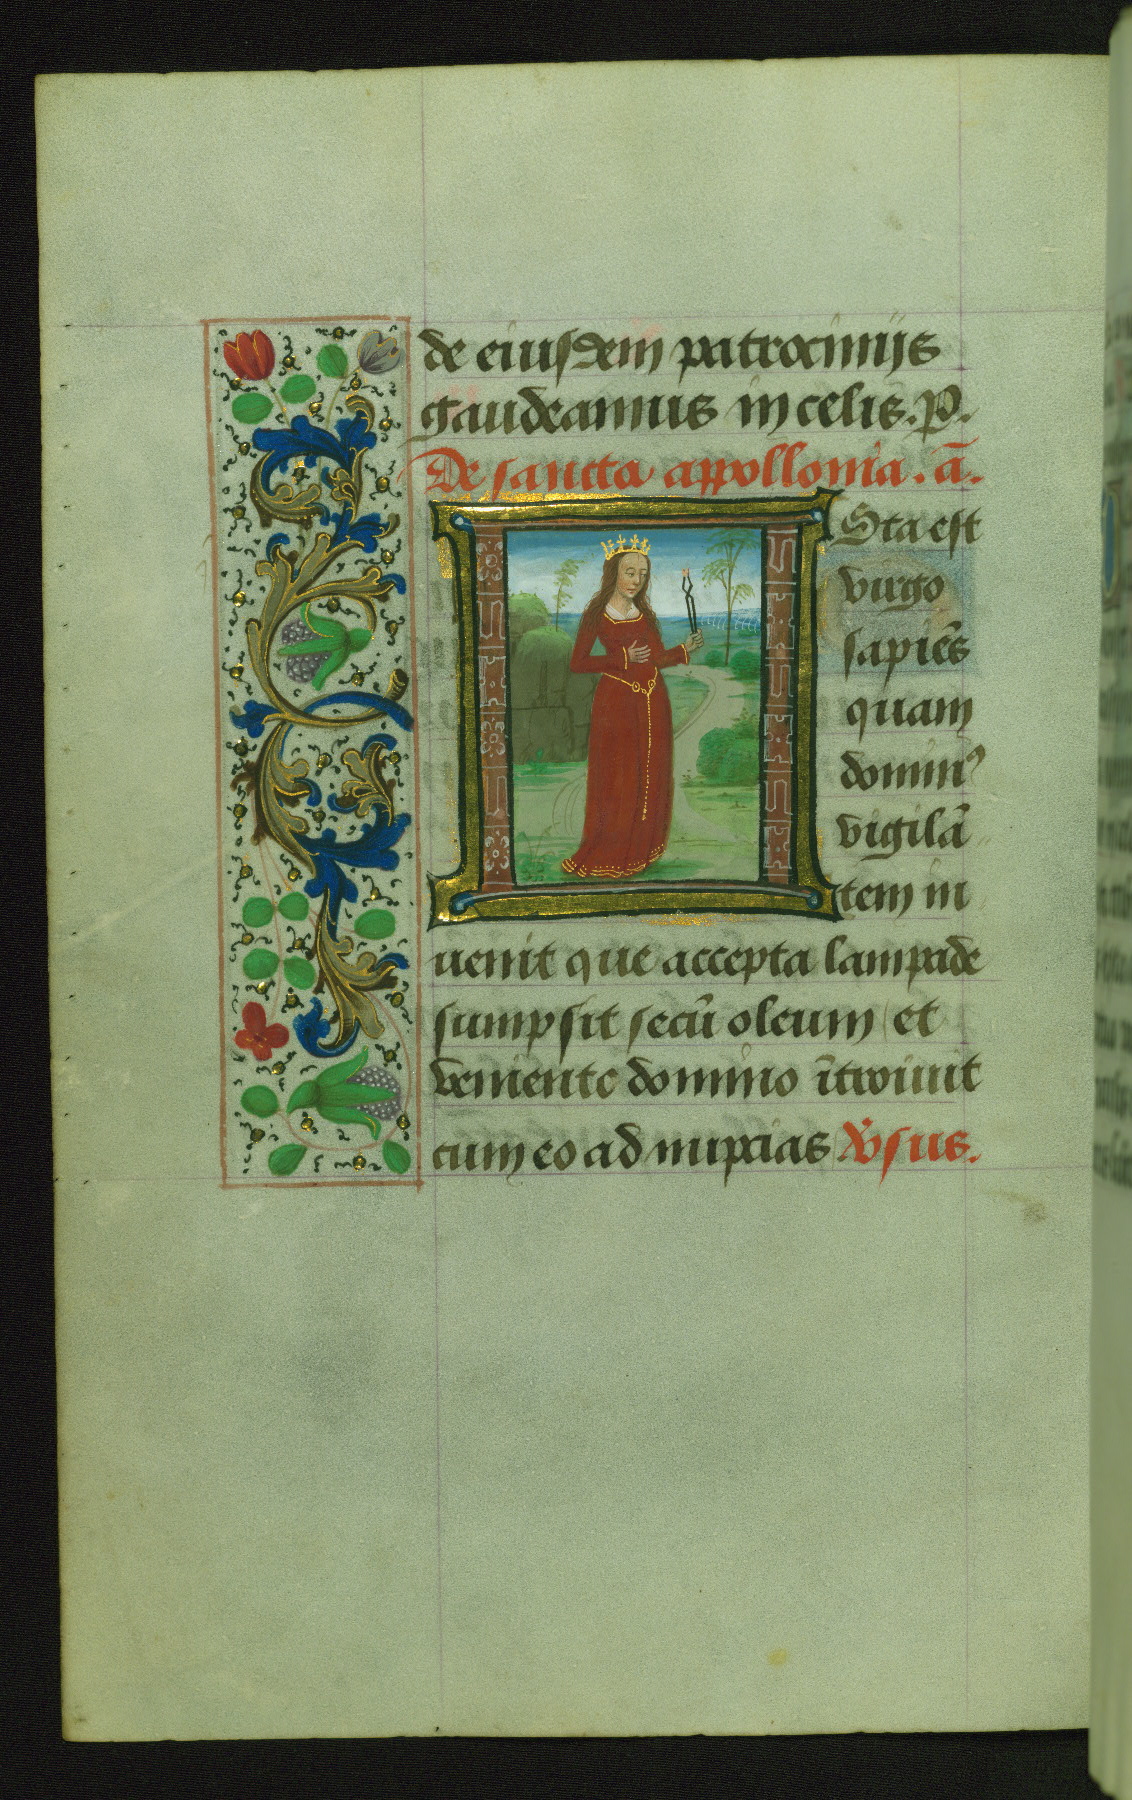 de eiusdem patrocinijs
gaudeamus in celis. P.
De sancta appollonia. ā.
Ista est
virgo
sapiēs
quam
dominꝰ
vigilā
tem in
uenit que accepta lampade
sumpsit secū oleum et
veniente domino ītroiuit
cum eo ad nupcias v̄sus.